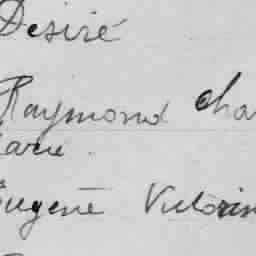 Desiré
Raymond Cha
arie
Eugène Victorin